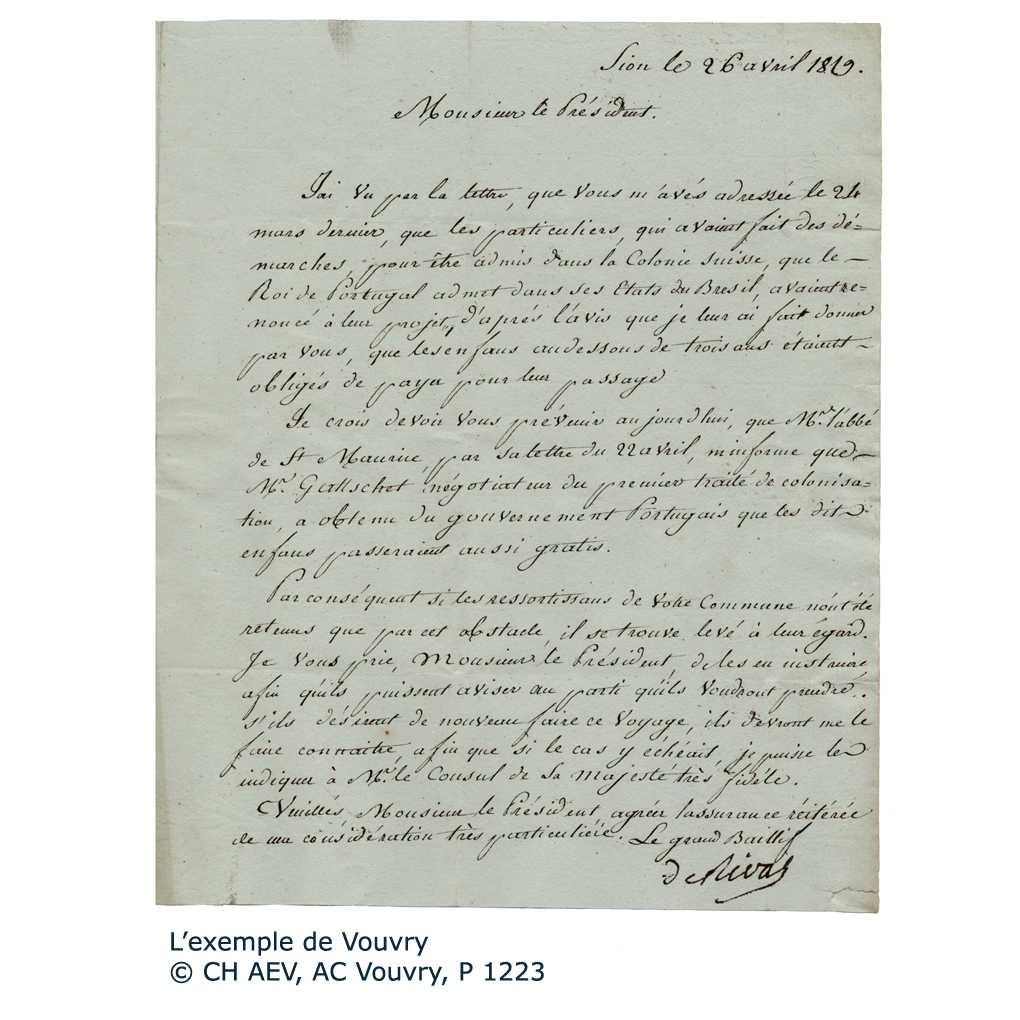 Sion le 26 avril 1819.
Monsieur le Président.
J'ai vu par la lettre, que vous m'avés adressée le 24
mars dernier, que les particuliers, qui avaient fait des dé-
marches, pour être admis dans la Colonie suisse, que le
Roi de Portugal admet dans ses Etats du Bresil, avaient re-
noncé à leur projet, d'après l'avis que je leur ai fait donner
par vous, que les enfans au dessous de trois ans étaient
obligés de payer pour leur passage
Je crois devoir vous prévenir aujourdhui, que Mr. l'abbé
de St Maurice, par sa lettre du 22 avril, m'informe que
Mr. Gattschet négotiateur du premier traité de colonisa-
tion, a obtenu du gouvernement Portugais que les dits
enfans passeraient aussi gratis.
Par conséquent si les ressortissans de votre Commune n'ont été
retenus que par cet obstacle, il se trouve levé à leur égard.
Je vous prie, Monsieur le Président, de les en instruire
afin qu'ils puissent aviser au parti qu'ils voudront prendre.
s'ils désirent de nouveau faire ce voyage, ils devront me le
faire connaitre, afin que si le cas y échéait, je puisse les
indiquer à Mr. le Consul de Sa majesté très fidéle.
Veuillés, Monsieur le Président, agréer l'assurance réitérée
de ma considération très particulière. Le grand Baillif
de Rivaz
L’exemple de Vouvry
© CH AEV, AC Vouvry, P 1223